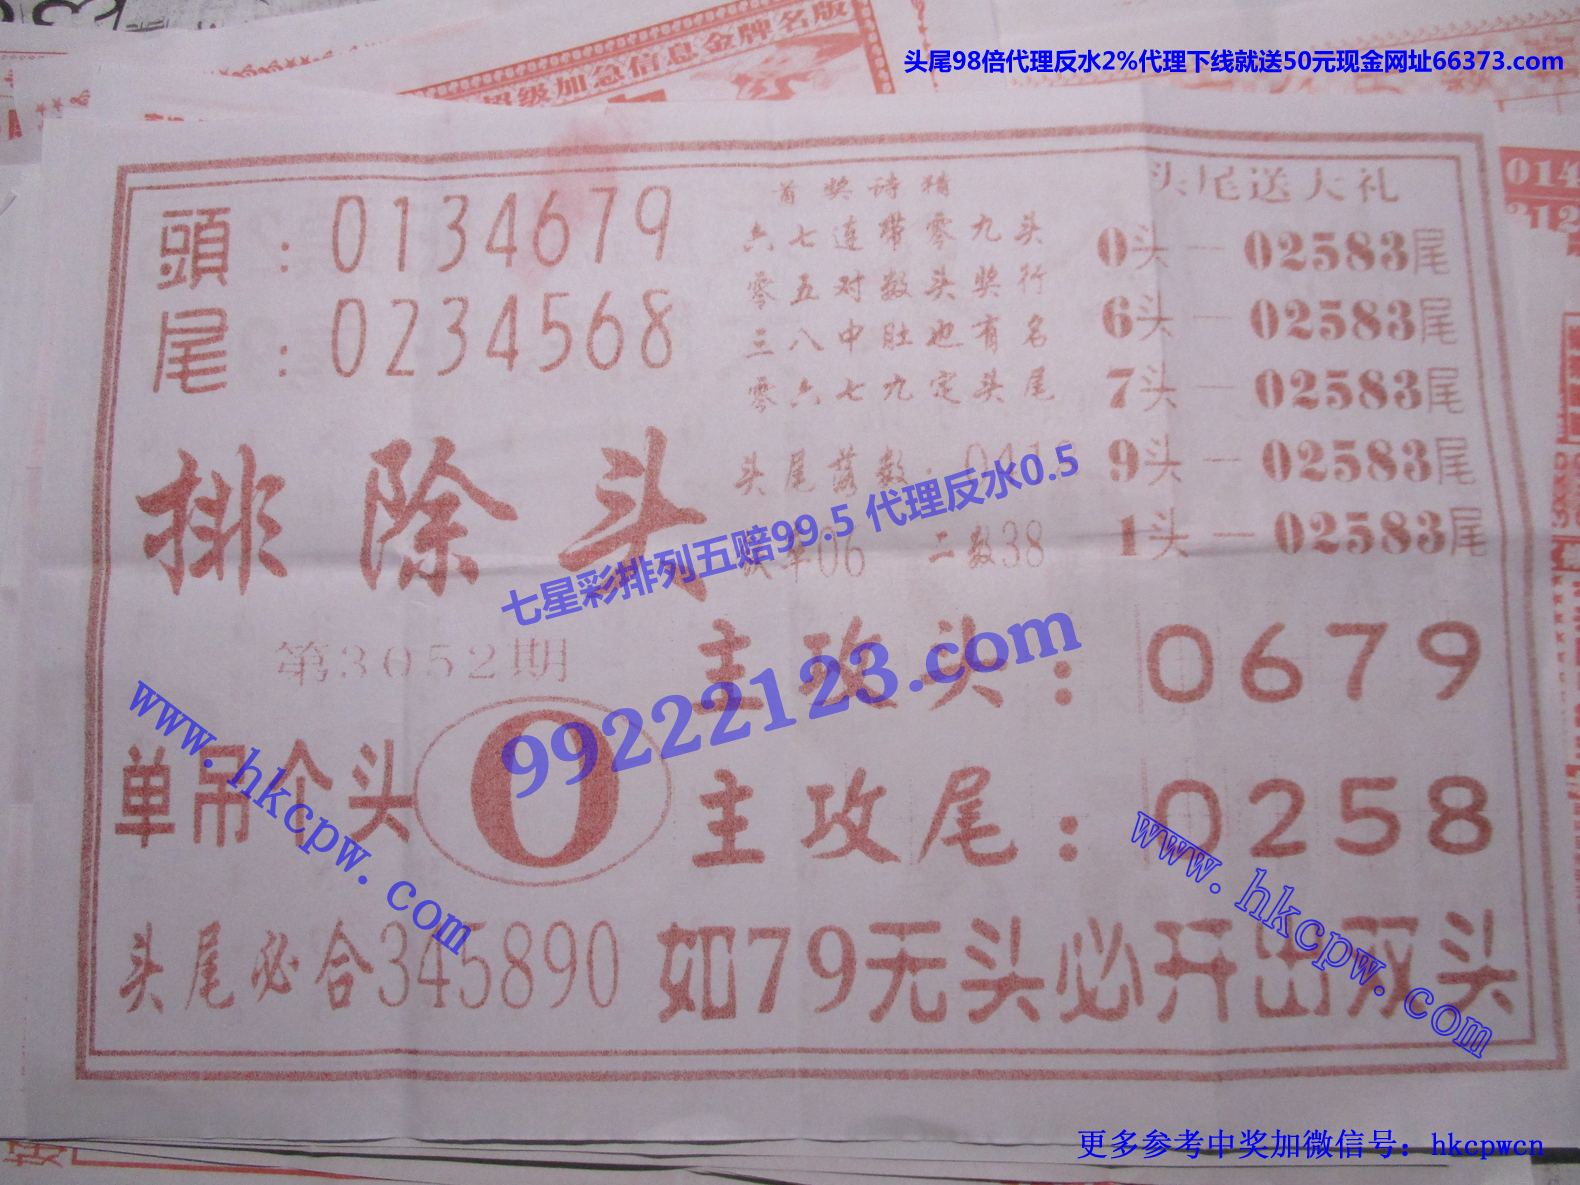 超级加急信息金牌名版
头尾98倍代理反水2%代理下线就送50元现金网址66373.com
014
212
頭：0134679
尾：0234568
首奖诗精
六七连带零九头
零五对数头奖行
三八中肚也有名
零六七九定头尾
头尾落数：041
06 二数38
头尾送大礼
0头－02583尾
6头－02583尾
7头－02583尾
9头－02583尾
1头－02583尾
排除头
七星彩排列五赔99.5 代理反水0.5
99222123.com
第3052期
单吊个头 0
主攻头：0679
主攻尾：0258
www.hkcpw.com
www.hkcpw.com
头尾必合345890
如79无头必开出双头
更多参考中奖加微信号：hkcpwcn